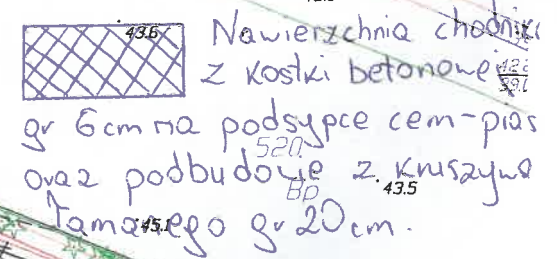 43.6 Nawierzchnia chodnika
z kostki betonowej
gr 6cm na podsypce cem-pias
520.
oraz podbudowie z kruszywa
Bp 43.5
łamanego gr 20 cm.
45.1